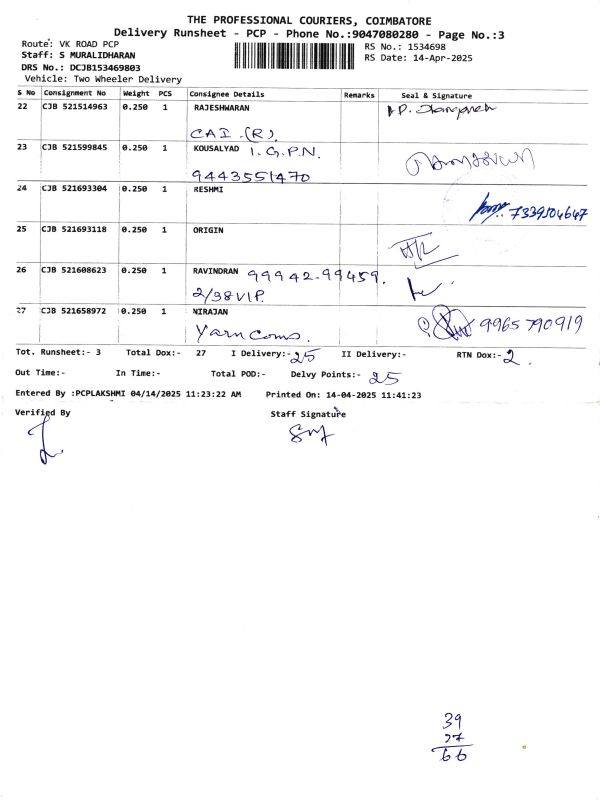 THE PROFESSIONAL COURIERS, COIMBATORE
Delivery Runsheet - PCP - Phone No.:9047080280 - Page No.:3
Route: VK ROAD PCP
RS No.: 1534698
Staff: S MURALIDHARAN
RS Date: 14-Apr-2025
DRS No.: DCJB153469803
Vehicle: Two Wheeler Delivery
S No Consignment No Weight PCS Consignee Details Remarks Seal & Signature
22 CJB 521514963 0.250 1 RAJESHWARAN
CAI (R).
23 CJB 521599845 0.250 1 KOUSALYAD I.G.P.N.
9443551470
24 CJB 521693304 0.250 1 RESHMI
7339504647
25 CJB 521693118 0.250 1 ORIGIN
26 CJB 521608623 0.250 1 RAVINDRAN 99942-99459.
2/38 VIP.
27 CJB 521658972 0.250 1 NIRAJAN 9965790919
Yarn Coms.
Tot. Runsheet:- 3 Total Dox:- 27 I Delivery:- 25 II Delivery:- RTN Dox:- 2
Out Time:- In Time:- Total POD:- Delvy Points:- 25
Entered By :PCPLAKSHMI 04/14/2025 11:23:22 AM Printed On: 14-04-2025 11:41:23
Verified By Staff Signature
39
27
66